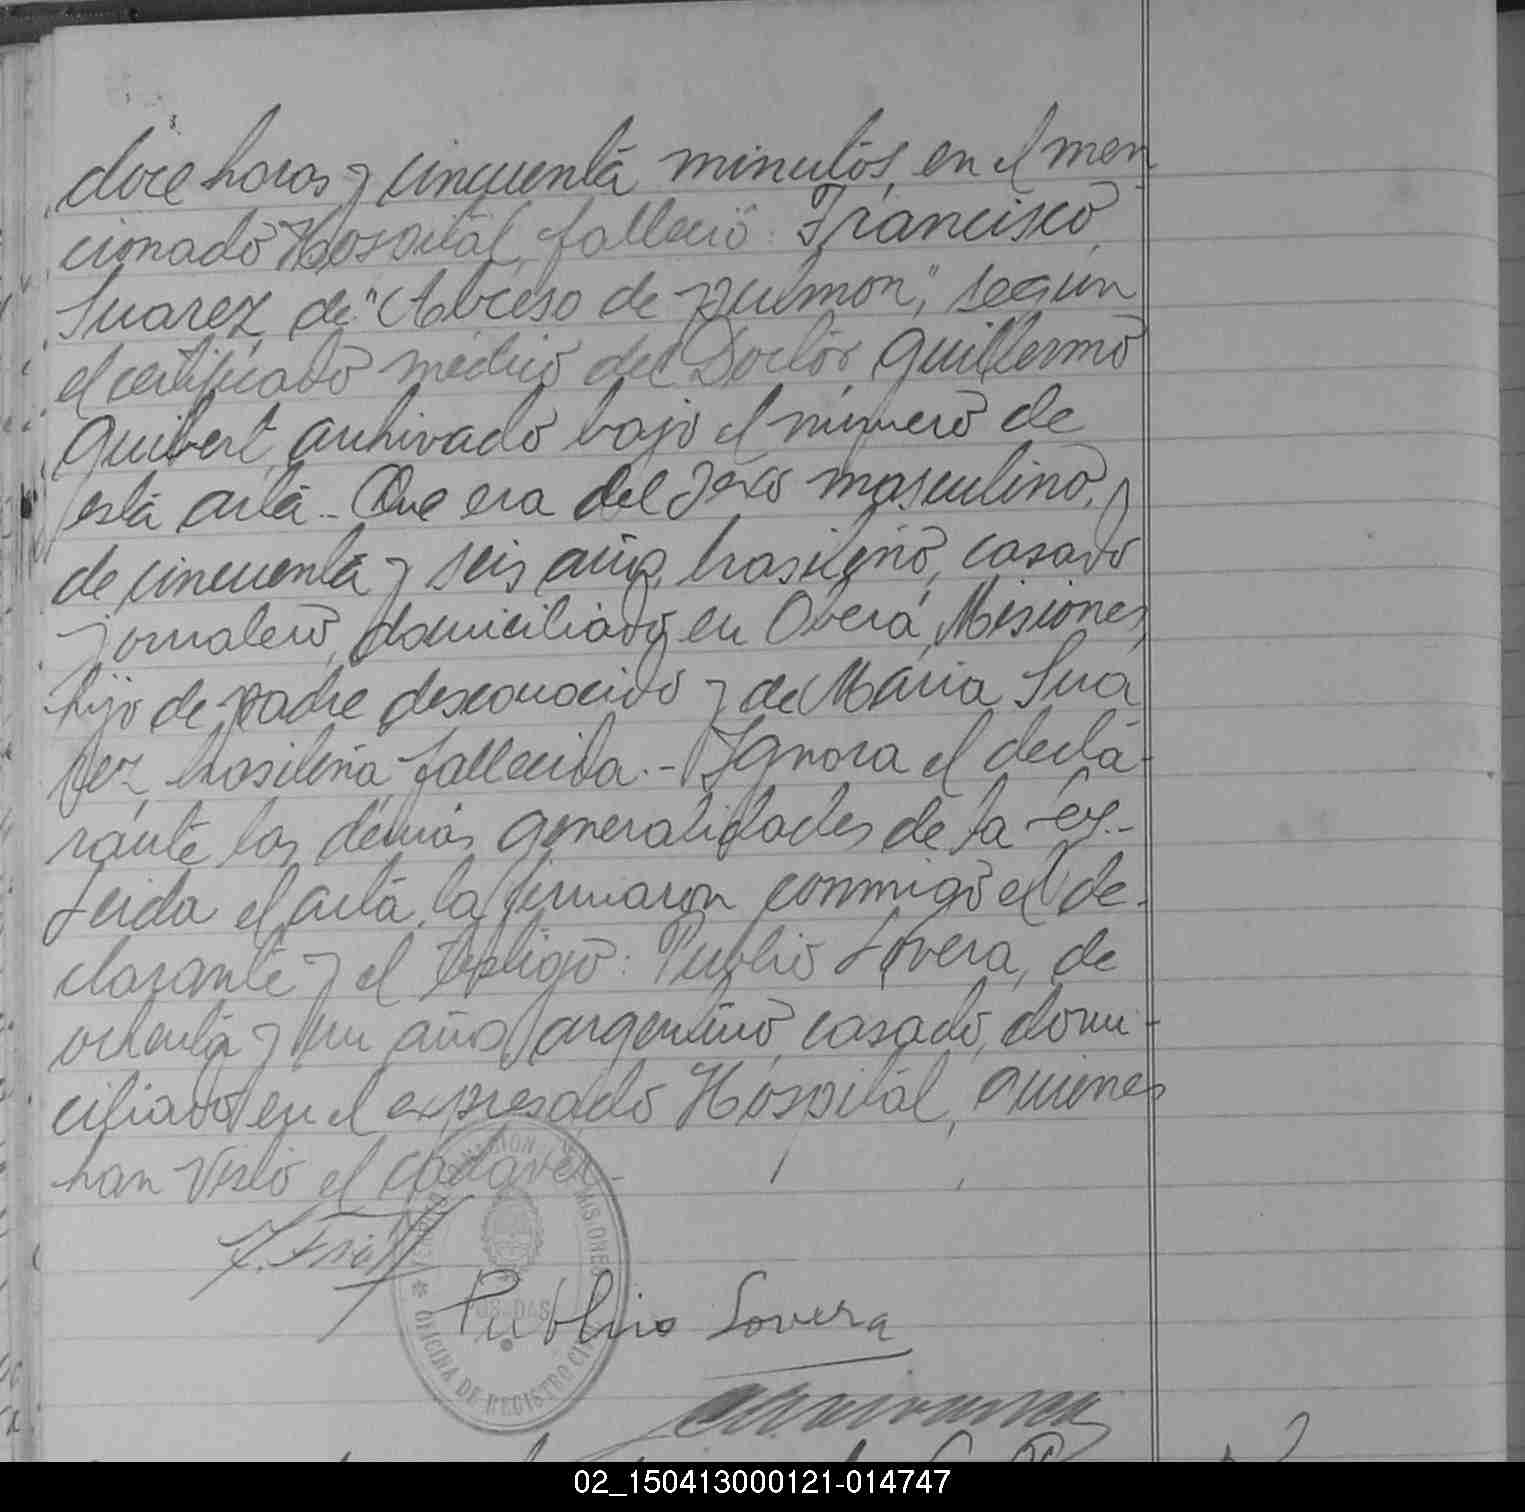 doce horas y cincuenta minutos, en el men-
cionado Hospital, falleció: Francisco
Suarez, de "Abceso de pulmon", según
el certificado médico del Doctor Guillermo
Guibert, archivado bajo el número de
esta acta.- Que era del sexo masculino,
de cincuenta y seis años, brasileño, casado
jornalero, domiciliado en Oberá, Misiones,
hijo de padre desconocido y de Maria Sua
rez, brasileña fallecida.- Ignora el decla-
rante las demás generalidades de la ley.-
Leida el acta, la firmaron conmigo el de-
clarante y el testigo: Publio Lovera, de
ochenta y un años, argentino, casado, domi-
ciliado en el expresado Hospital, quienes
han visto el cadaver.-
MISIONES
POSADAS
Publio Lovera
* OFICINA DE REGISTRO CIVIL
02_150413000121-014747